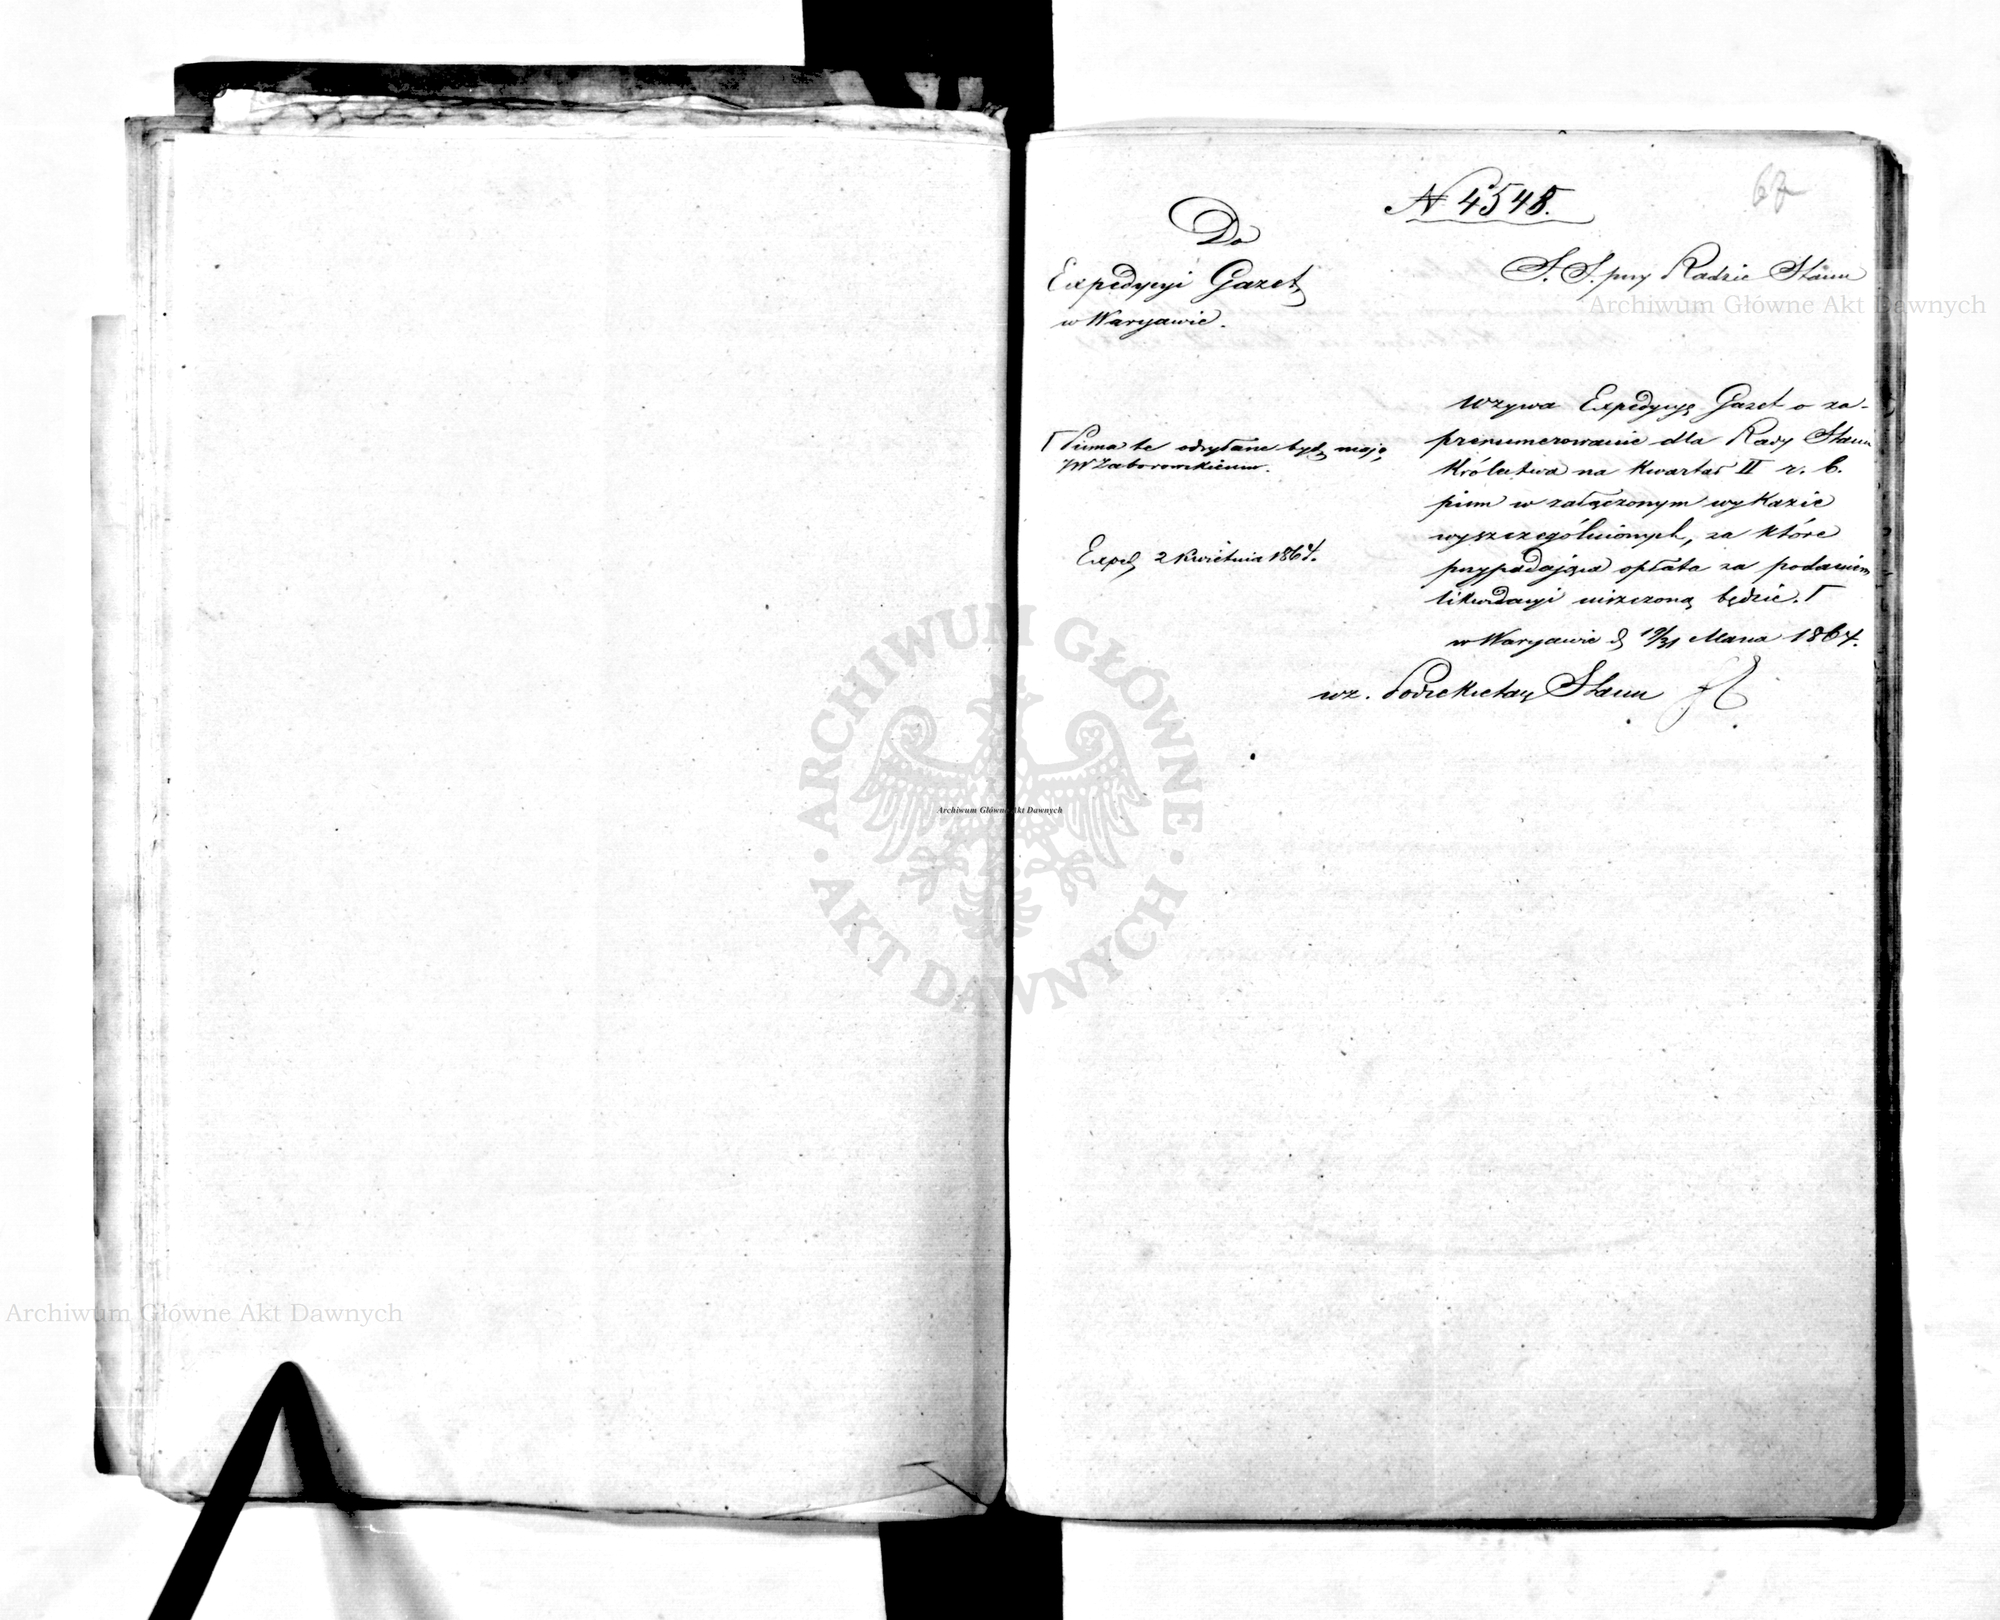 67
N 4548.
Do
Expedycyi Gazet
w Warszawie.
S. S. przy Radzie Stanu
Wzywa Expedycyę Gazet o za-
prenumerowanie dla Rady Stanu
Królestwa na Kwartał II r. b.
pism w załączonym wykazie
wyszczególnionych, za które
przypadająca opłata za podaniem
likwidacyi uiszczoną będzie. Γ
Γ Pisma te odsyłane być mają
JW Zaborowskiemu.
Exped 2 Kwietnia 1864.
w Warszawie d 19/31 Marca 1864.
wz. Podsekretarz Stanu
Archiwum Główne Akt Dawnych
ARCHIWUM GŁÓWNE
Archiwum Główne Akt Dawnych
AKT DAWNYCH
Archiwum Główne Akt Dawnych